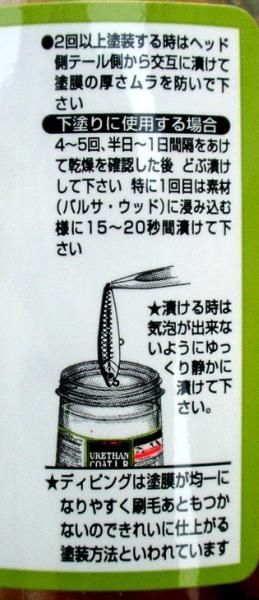 ●2回以上塗装する時はヘッド
側テール側から交互に漬けて
塗膜の厚さムラを防いで下
さい
下塗りに使用する場合
4〜5回、半日〜1日間隔をあけ
て乾燥を確認した後 どぶ漬け
して下さい 特に1回目は素材
(バルサ・ウッド)に浸み込む
様に15〜20秒間漬けて下
さい
★漬ける時は
気泡が出来な
いようにゆっ
くり静かに
漬けて下
さい。
URETHAN
COAT
★ディピングは塗膜が均一に
なりやすく刷毛あともつか
ないのできれいに仕上がる
塗装方法といわれています